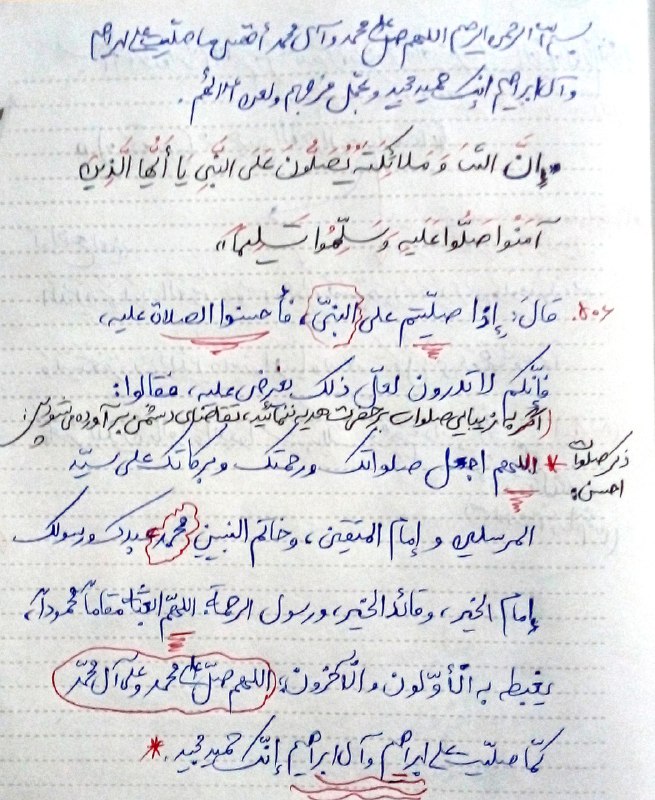 بسم الله الرحمن الرحیم اللهم صل علی محمد وآل محمد أفضل ما صلیت علی ابراهیم
وآل ابراهیم إنک حمید مجید وعجل فرجهم ولعن أعدائهم.
«إِنَّ اللَّهَ وَ مَلائِکَتَهُ یُصَلُّونَ عَلَی النَّبِیِ یَا أَیُّهَا الَّذِینَ
آمَنُوا صَلُّوا عَلَیهِ وَ سَلِّمُوا تَسلِیماً»
قالَ: إِذا صلّیتم علی النبیّ، فأحسنوا الصلاة علیه،
فإنّکم لا تدرون لعلّ ذلک یعرض علیه، فقالوا:
(اگر به زیبایی صلوات بر حضرت هدیه نمائید، تقاضای دشمن برآورده می‌شود پس:
ذکر صلوات
احسن:
* اللهم اجعل صلواتک ورحمتک وبرکاتک علی سیّد
المرسلین و إمام المتقین، وخاتم النبیین محمد عبدک ورسولک
إمام الخیر، وقائد الخیر، ورسول الرحمة. اللهمّ ابعثه مقاماً محموداً،
یغبطه به الأوّلون والآخرون، اللهم صلّ علی محمد وعلی آل محمّد
کمّا صلیّت علی ابراهیم وآل ابراهیم إنّک حمید مجید. *